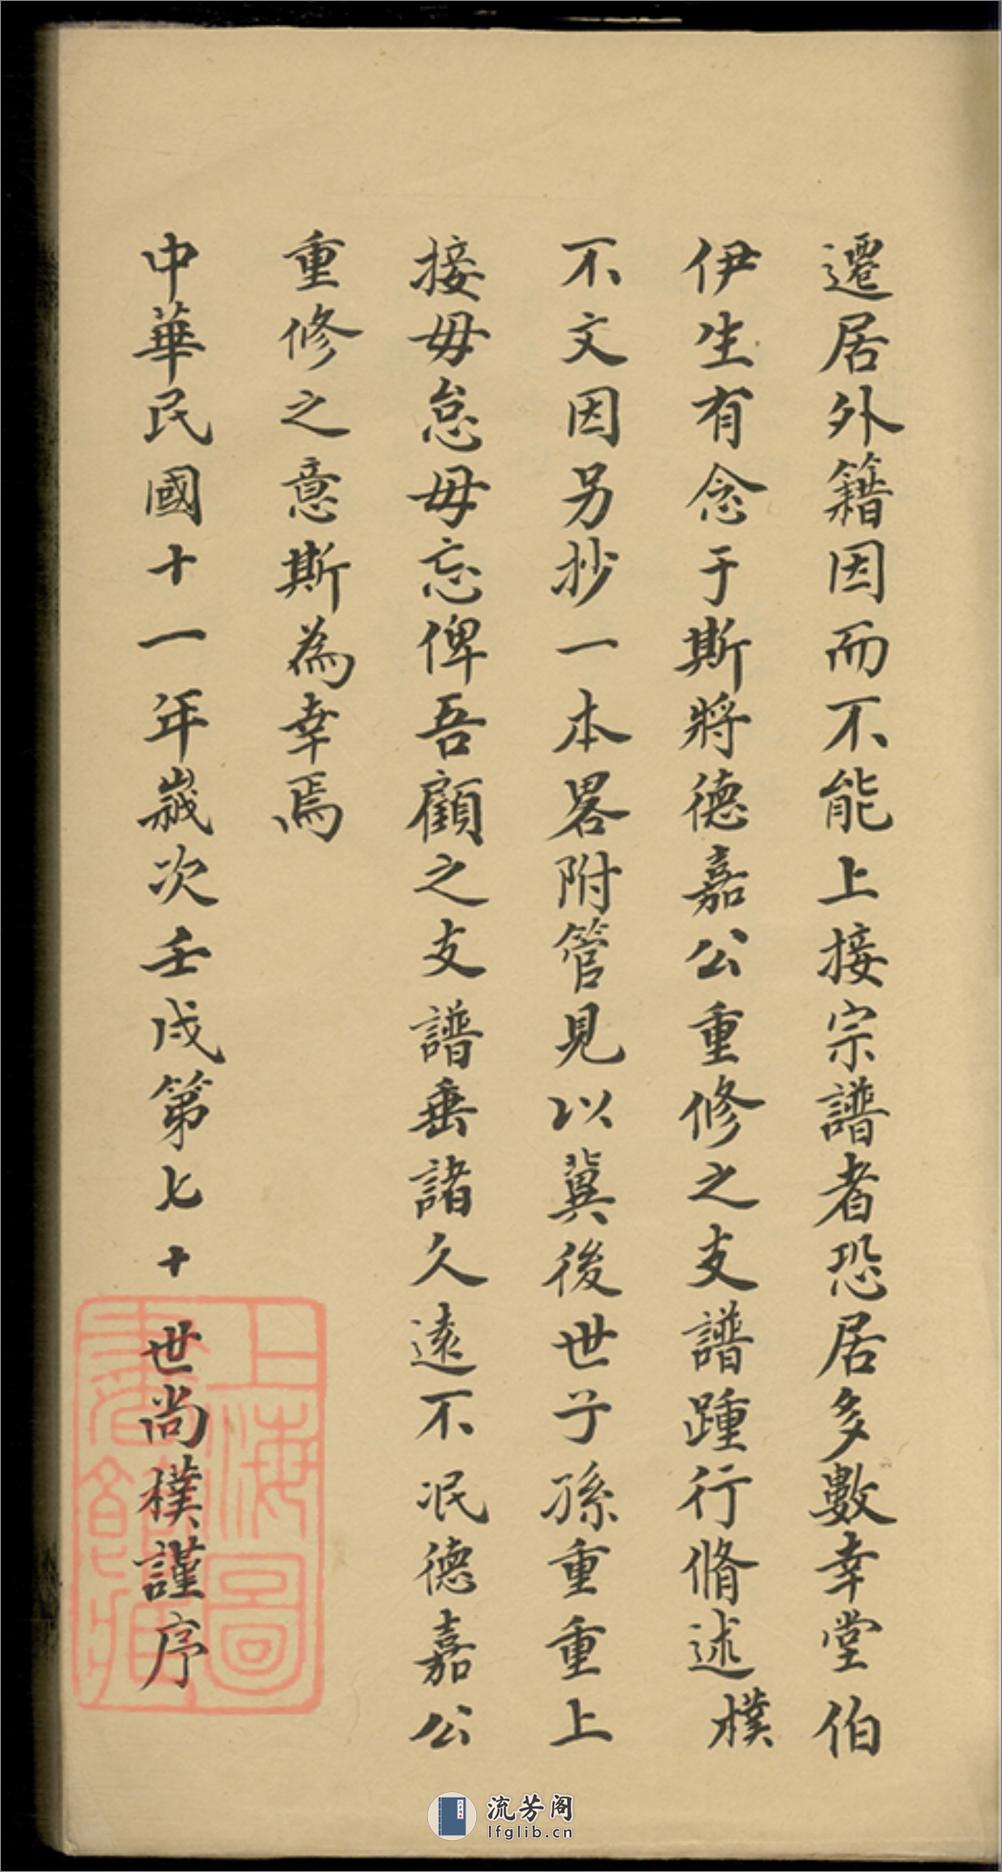 遷居外籍因而不能上接宗譜者恐居多數幸堂伯
伊生有念于斯將德嘉公重修之支譜踵行脩述樸
不文因另抄一本畧附管見以冀後世子孫重重上
接毋怠毋忘俾吾顧之支譜垂諸久遠不泯德嘉公
重修之意斯為幸焉
中華民國十一年歲次壬戌第七十世尚樸謹序
上海圖
書館藏
流芳阁
lfglib.cn